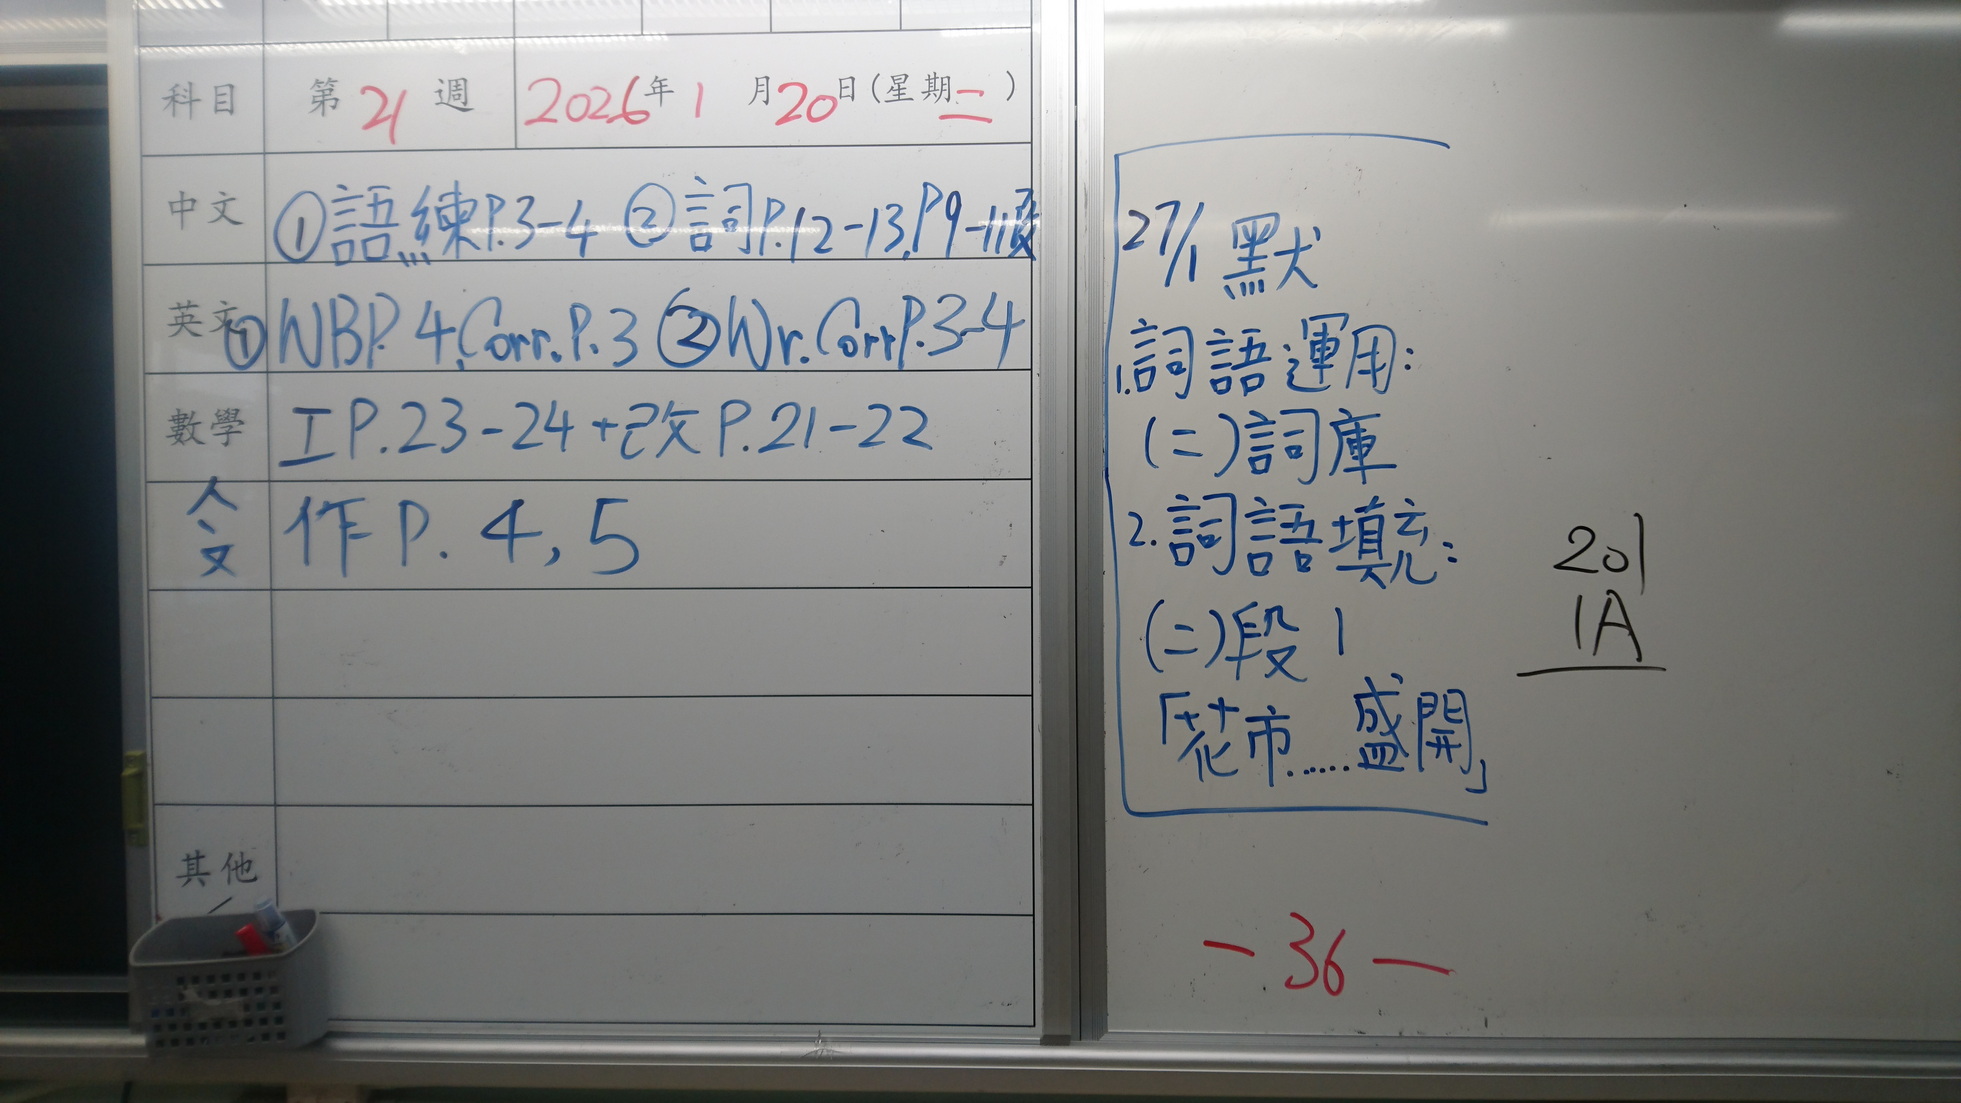 科目 第 21 週 2026年 1 月 20 日(星期二)
中文 ①語練P.3-4 ②詞P.12-13, P9-11改
英文 ①WBP.4, Corr.P.3 ②Wr.CorrP.3-4
數學 工P.23-24+改P.21-22
人文 作P. 4, 5
其他
27/1 默
1.詞語運用:
(二)詞庫
2.詞語填充:
(二)段1
「花市……盛開」
-36-
201
1A